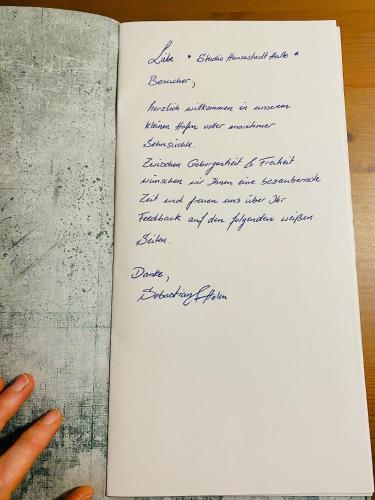 Liebe * Studio Hansestadt Halle *
Besucher,
herzlich willkommen in unserem
kleinen Hafen voller maritimer
Sehnsüchte.
Zwischen Geborgenheit & Freiheit
wünschen wir Ihnen eine bezaubernde
Zeit und freuen uns über Ihr
Feedback auf den folgenden weißen
Seiten.
Danke,
Sebastian &